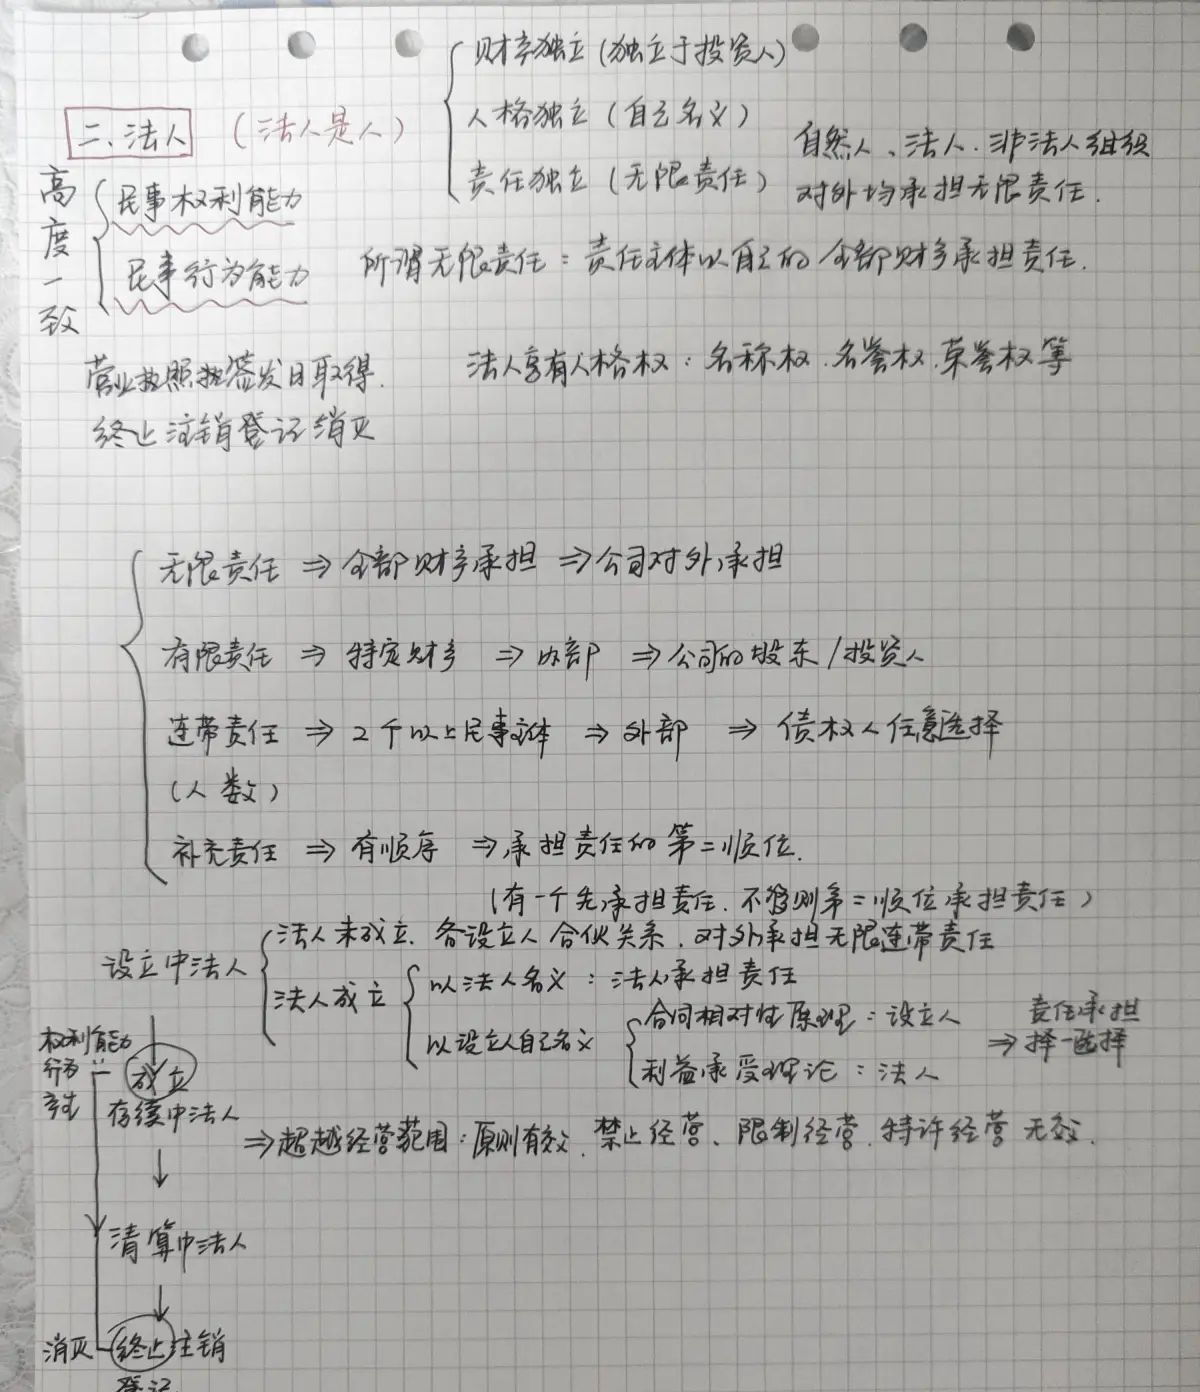 财产独立(独立于投资人)
二、法人 (法人是人)
人格独立(自己名义)
责任独立(无限责任)
自然人、法人、非法人组织
对外均承担无限责任.
高度一致
民事权利能力
民事行为能力
所谓无限责任:责任主体以自己的全部财产承担责任.
营业执照执签发日取得.
终止注销登记消灭
法人享有人格权:名称权.名誉权.荣誉权等
无限责任⇒全部财产承担⇒公司对外承担
有限责任⇒特定财产⇒内部⇒公司的股东/投资人
连带责任⇒2个以上民事主体⇒外部⇒债权人任意选择
(人数)
补充责任⇒有顺序⇒承担责任的第二顺位.
(有一个先承担责任.不够则第二顺位承担责任)
设立中法人
法人未成立.各设立人合伙关系.对外承担无限连带责任
法人成立
以法人名义:法人承担责任
以设立人自己名义
合同相对性原理:设立人
利益承受理论:法人
责任承担
⇒择一选择
权利能力
行为
产生
成立
存续中法人
⇒超越经营范围:原则有效.禁止经营、限制经营.特许经营无效.
↓
清算中法人
↓
消灭 终止注销
登记